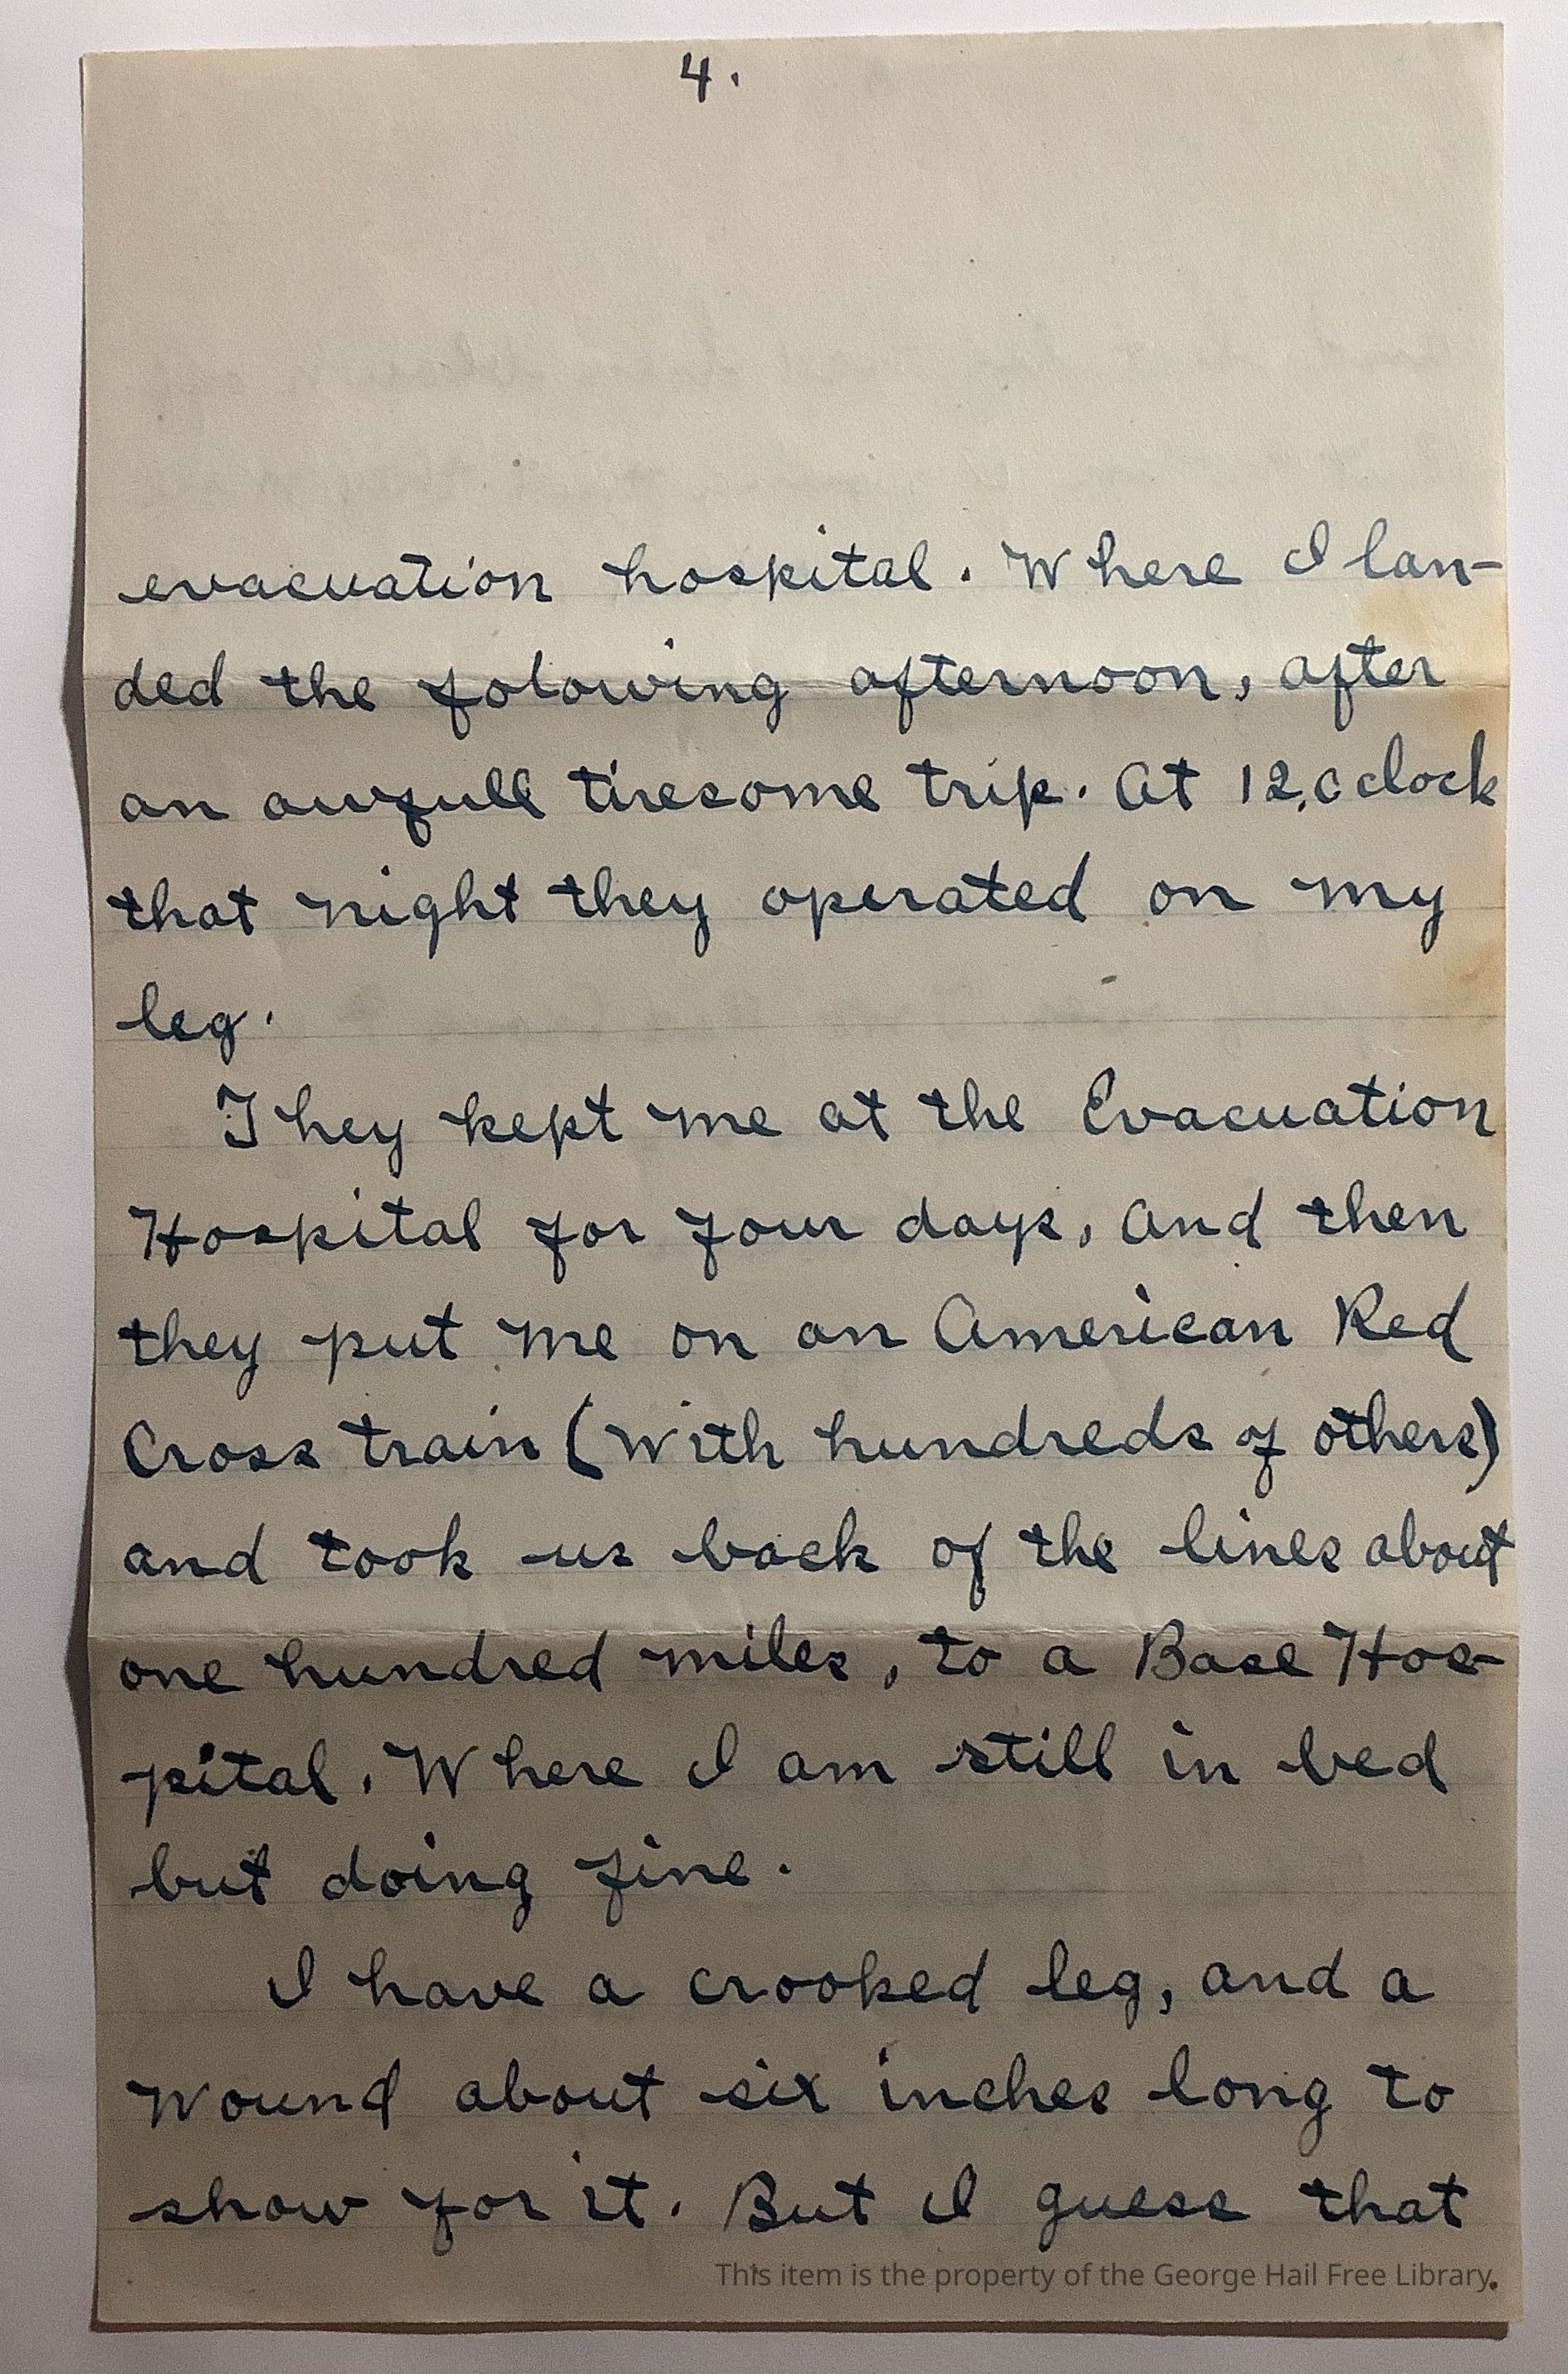 4.
evacuation hospital. Where I lan-
ded the folowing afternoon, after
an awfull tiresome trip. At 12,oclock
that night they operated on my
leg.
They kept me at the Evacuation
Hospital for four days, And then
they put me on an American Red
Cross train (With hundreds of others)
and took us back of the lines about
one hundred miles, to a Base Hos-
pital. Where I am still in bed
but doing fine.
I have a crooked leg, and a
Wound about six inches long to
show for it. But I guess that
This item is the property of the George Hail Free Library.